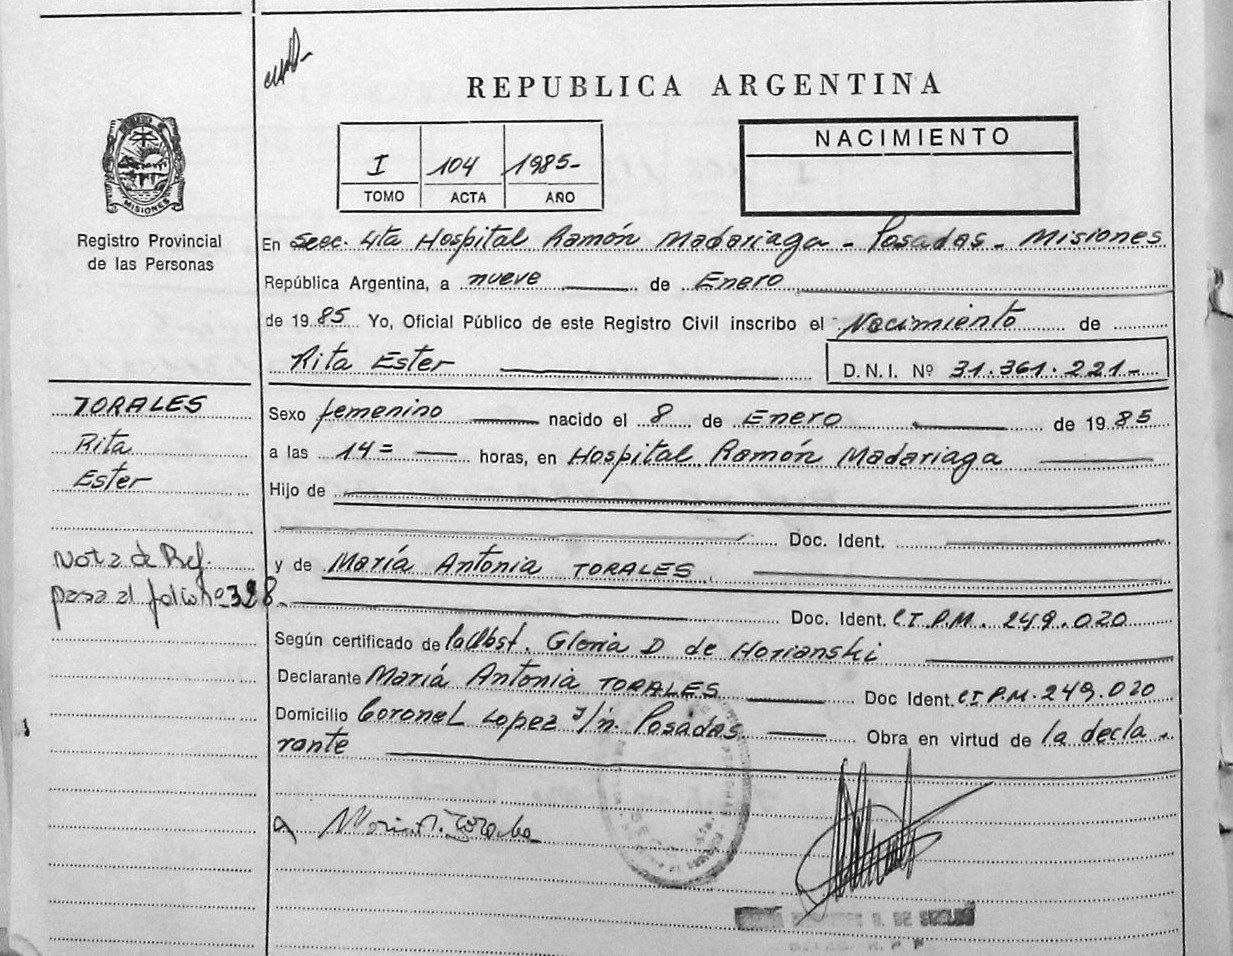 REPUBLICA ARGENTINA
I 104 1985-
TOMO ACTA AÑO
NACIMIENTO
MISIONES
Registro Provincial
de las Personas
En Secc. 4ta Hospital Ramón Madariaga - Posadas - Misiones
República Argentina, a nueve de Enero
de 1985 Yo, Oficial Público de este Registro Civil inscribo el Nacimiento de
Rita Ester D.N.I. Nº 31.361.221-
TORALES
Rita
Ester
Sexo femenino nacido el 8 de Enero de 1985
a las 14= horas, en Hospital Ramón Madariaga
Hijo de
Doc. Ident.
Nota de Ref.
pasa al folio nº 328.
y de María Antonia TORALES
Doc. Ident. C.I.P.M. 249.020
Según certificado de la Obst. Gloria D de Horianski
Declarante María Antonia TORALES Doc Ident. C.I.P.M. 249.020
Domicilio Coronel Lopez s/n. Posadas Obra en virtud de la decla-
rante
DE